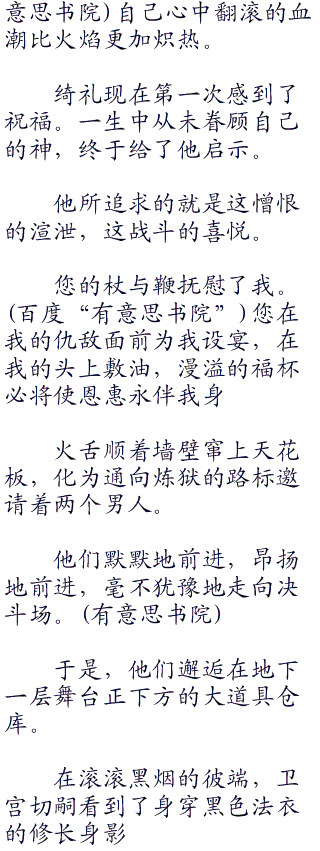 意思书院)自己心中翻滚的血
潮比火焰更加炽热。
绮礼现在第一次感到了
祝福。一生中从未眷顾自己
的神，终于给了他启示。
他所追求的就是这憎恨
的渲泄，这战斗的喜悦。
您的杖与鞭抚慰了我。
(百度“有意思书院”)您在
我的仇敌面前为我设宴，在
我的头上敷油，漫溢的福杯
必将使恩惠永伴我身
火舌顺着墙壁窜上天花
板，化为通向炼狱的路标邀
请着两个男人。
他们默默地前进，昂扬
地前进，毫不犹豫地走向决
斗场。(有意思书院)
于是，他们邂逅在地下
一层舞台正下方的大道具仓
库。
在滚滚黑烟的彼端，卫
宫切嗣看到了身穿黑色法衣
的修长身影